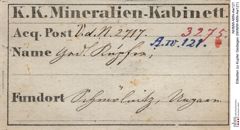 K. K. Mineralien-Kabinett.
Acq. Post V.d.N. 2717. 3275.
A.w. 121.
Name Ged. Kupfer,
Fundort Schmöllnitz, Ungarn